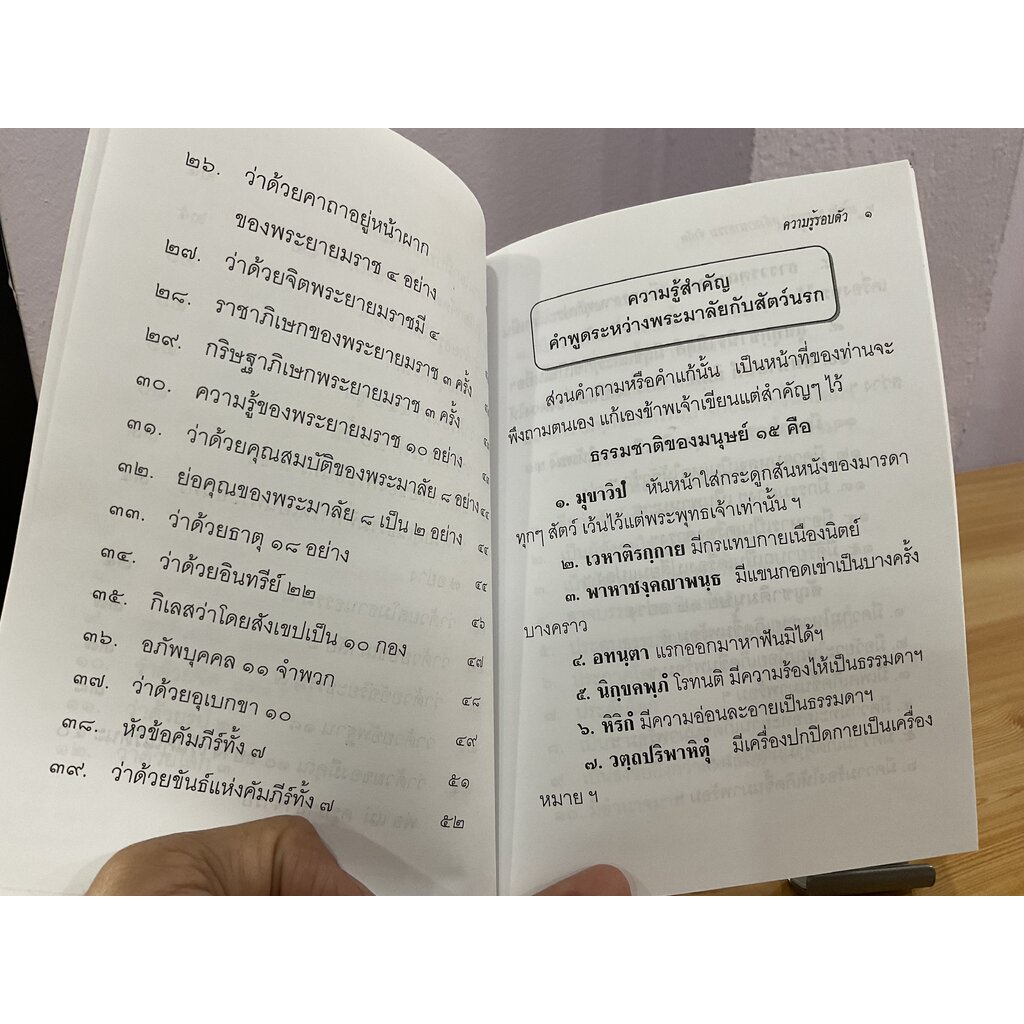 ๒๖. ว่าด้วยคาถาอยู่หน้าผาก
ของพระยายมราช ๔ อย่าง
๒๗. ว่าด้วยจิตพระยายมราชมี ๔
๒๘. ราชาภิเษกของพระยายมราช ๓ ครั้ง
๒๙. กริษฐาภิเษกพระยายมราช ๓ ครั้ง
๓๐. ความรู้ของพระยายมราช ๑๐ อย่าง
๓๑. ว่าด้วยคุณสมบัติของพระมาลัย ๘ อย่าง ๔๔
๓๒. ย่อคุณของพระมาลัย ๘ เป็น ๒ อย่าง
๓๓. ว่าด้วยธาตุ ๑๘ อย่าง
๓๔. ว่าด้วยอินทรีย์ ๒๒
๓๕. กิเลสว่าโดยสังเขปเป็น ๑๐ กอง ๔๖
๓๖. อภัพบุคคล ๑๑ จำพวก ๔๗
๓๗. ว่าด้วยอุเบกขา ๑๐ ๔๘
๓๘. หัวข้อคัมภีร์ทั้ง ๗ ๔๙
๓๙. ว่าด้วยขันธ์แห่งคัมภีร์ทั้ง ๗ ๕๑
๕๒
ความรู้รอบตัว ๑
ความรู้สำคัญ
คำพูดระหว่างพระมาลัยกับสัตว์นรก
ส่วนคำถามหรือคำแก้นั้น เป็นหน้าที่ของท่านจะ
พึงถามตนเอง แก้เองข้าพเจ้าเขียนแต่สำคัญๆ ไว้
ธรรมชาติของมนุษย์ ๑๕ คือ
๑. มุขาวิปํ หันหน้าใส่กระดูกสันหนังของมารดา
ทุกๆ สัตว์ เว้นไว้แต่พระพุทธเจ้าเท่านั้น ฯ
๒. เวหาติรกฺกาย มีกรแทบกายเนืองนิตย์
๓. พาหาชงฺคญาพนฺธ มีแขนกอดเข่าเป็นบางครั้ง
บางคราว
๔. อทนฺตา แรกออกมาหาฟันมิได้ฯ
๕. นิกฺขคพฺภํ โรทนติ มีความร้องไห้เป็นธรรมดาฯ
๖. หิริกํ มีความอ่อนละอายเป็นธรรมดาฯ
๗. วตฺถปริพาหิตุํ มีเครื่องปกปิดกายเป็นเครื่อง
หมาย ฯ